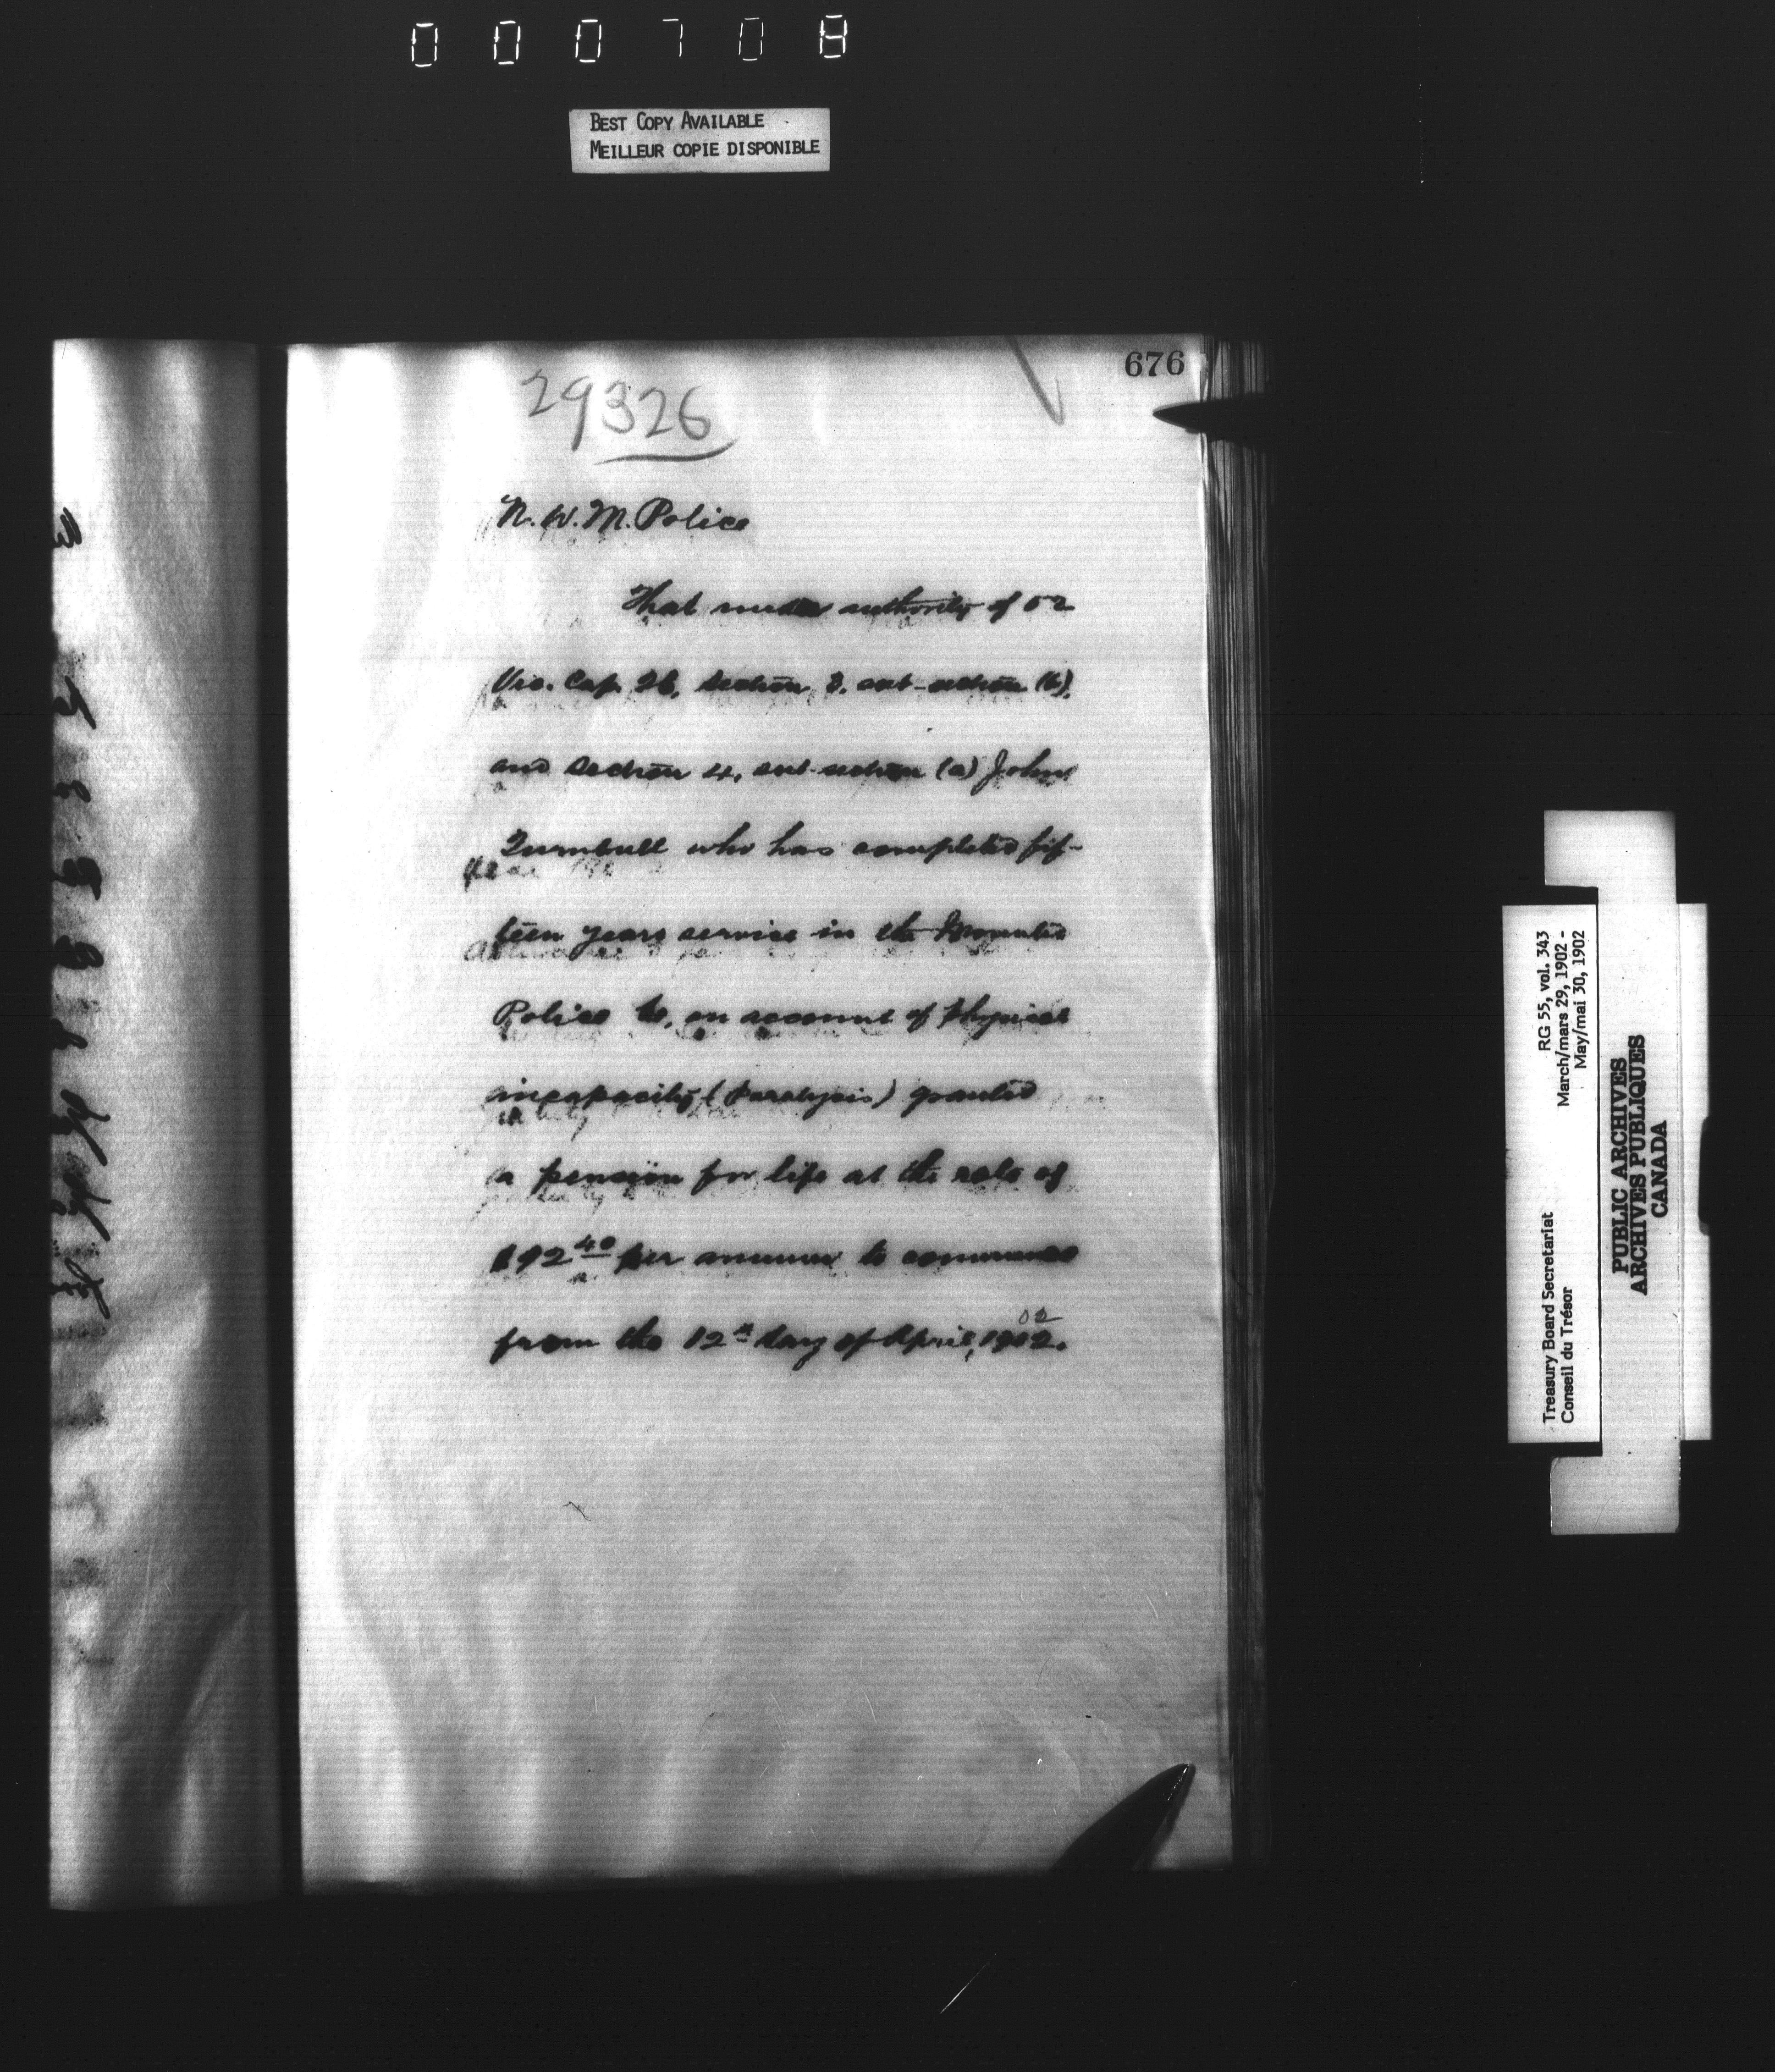 000708
BEST COPY AVAILABLE
MEILLEUR COPIE DISPONIBLE
676
29326
N. W. M. Police
That under authority of 52
Vic. Cap. 26, section 3, sub-section (b),
and section 4, sub-section (a) John
Turnbull who has completed fif-
teen years service in the Mounted
Police be, on account of physical
incapacity (paralysis) granted
a pension for life at the rate of
$92 40 per annum to commence
from the 12th day of April, 1902.
02
RG 55, vol. 343
March/mars 29, 1902 -
May/mai 30, 1902
Treasury Board Secretariat
Conseil du Trésor
PUBLIC ARCHIVES
ARCHIVES PUBLIQUES
CANADA